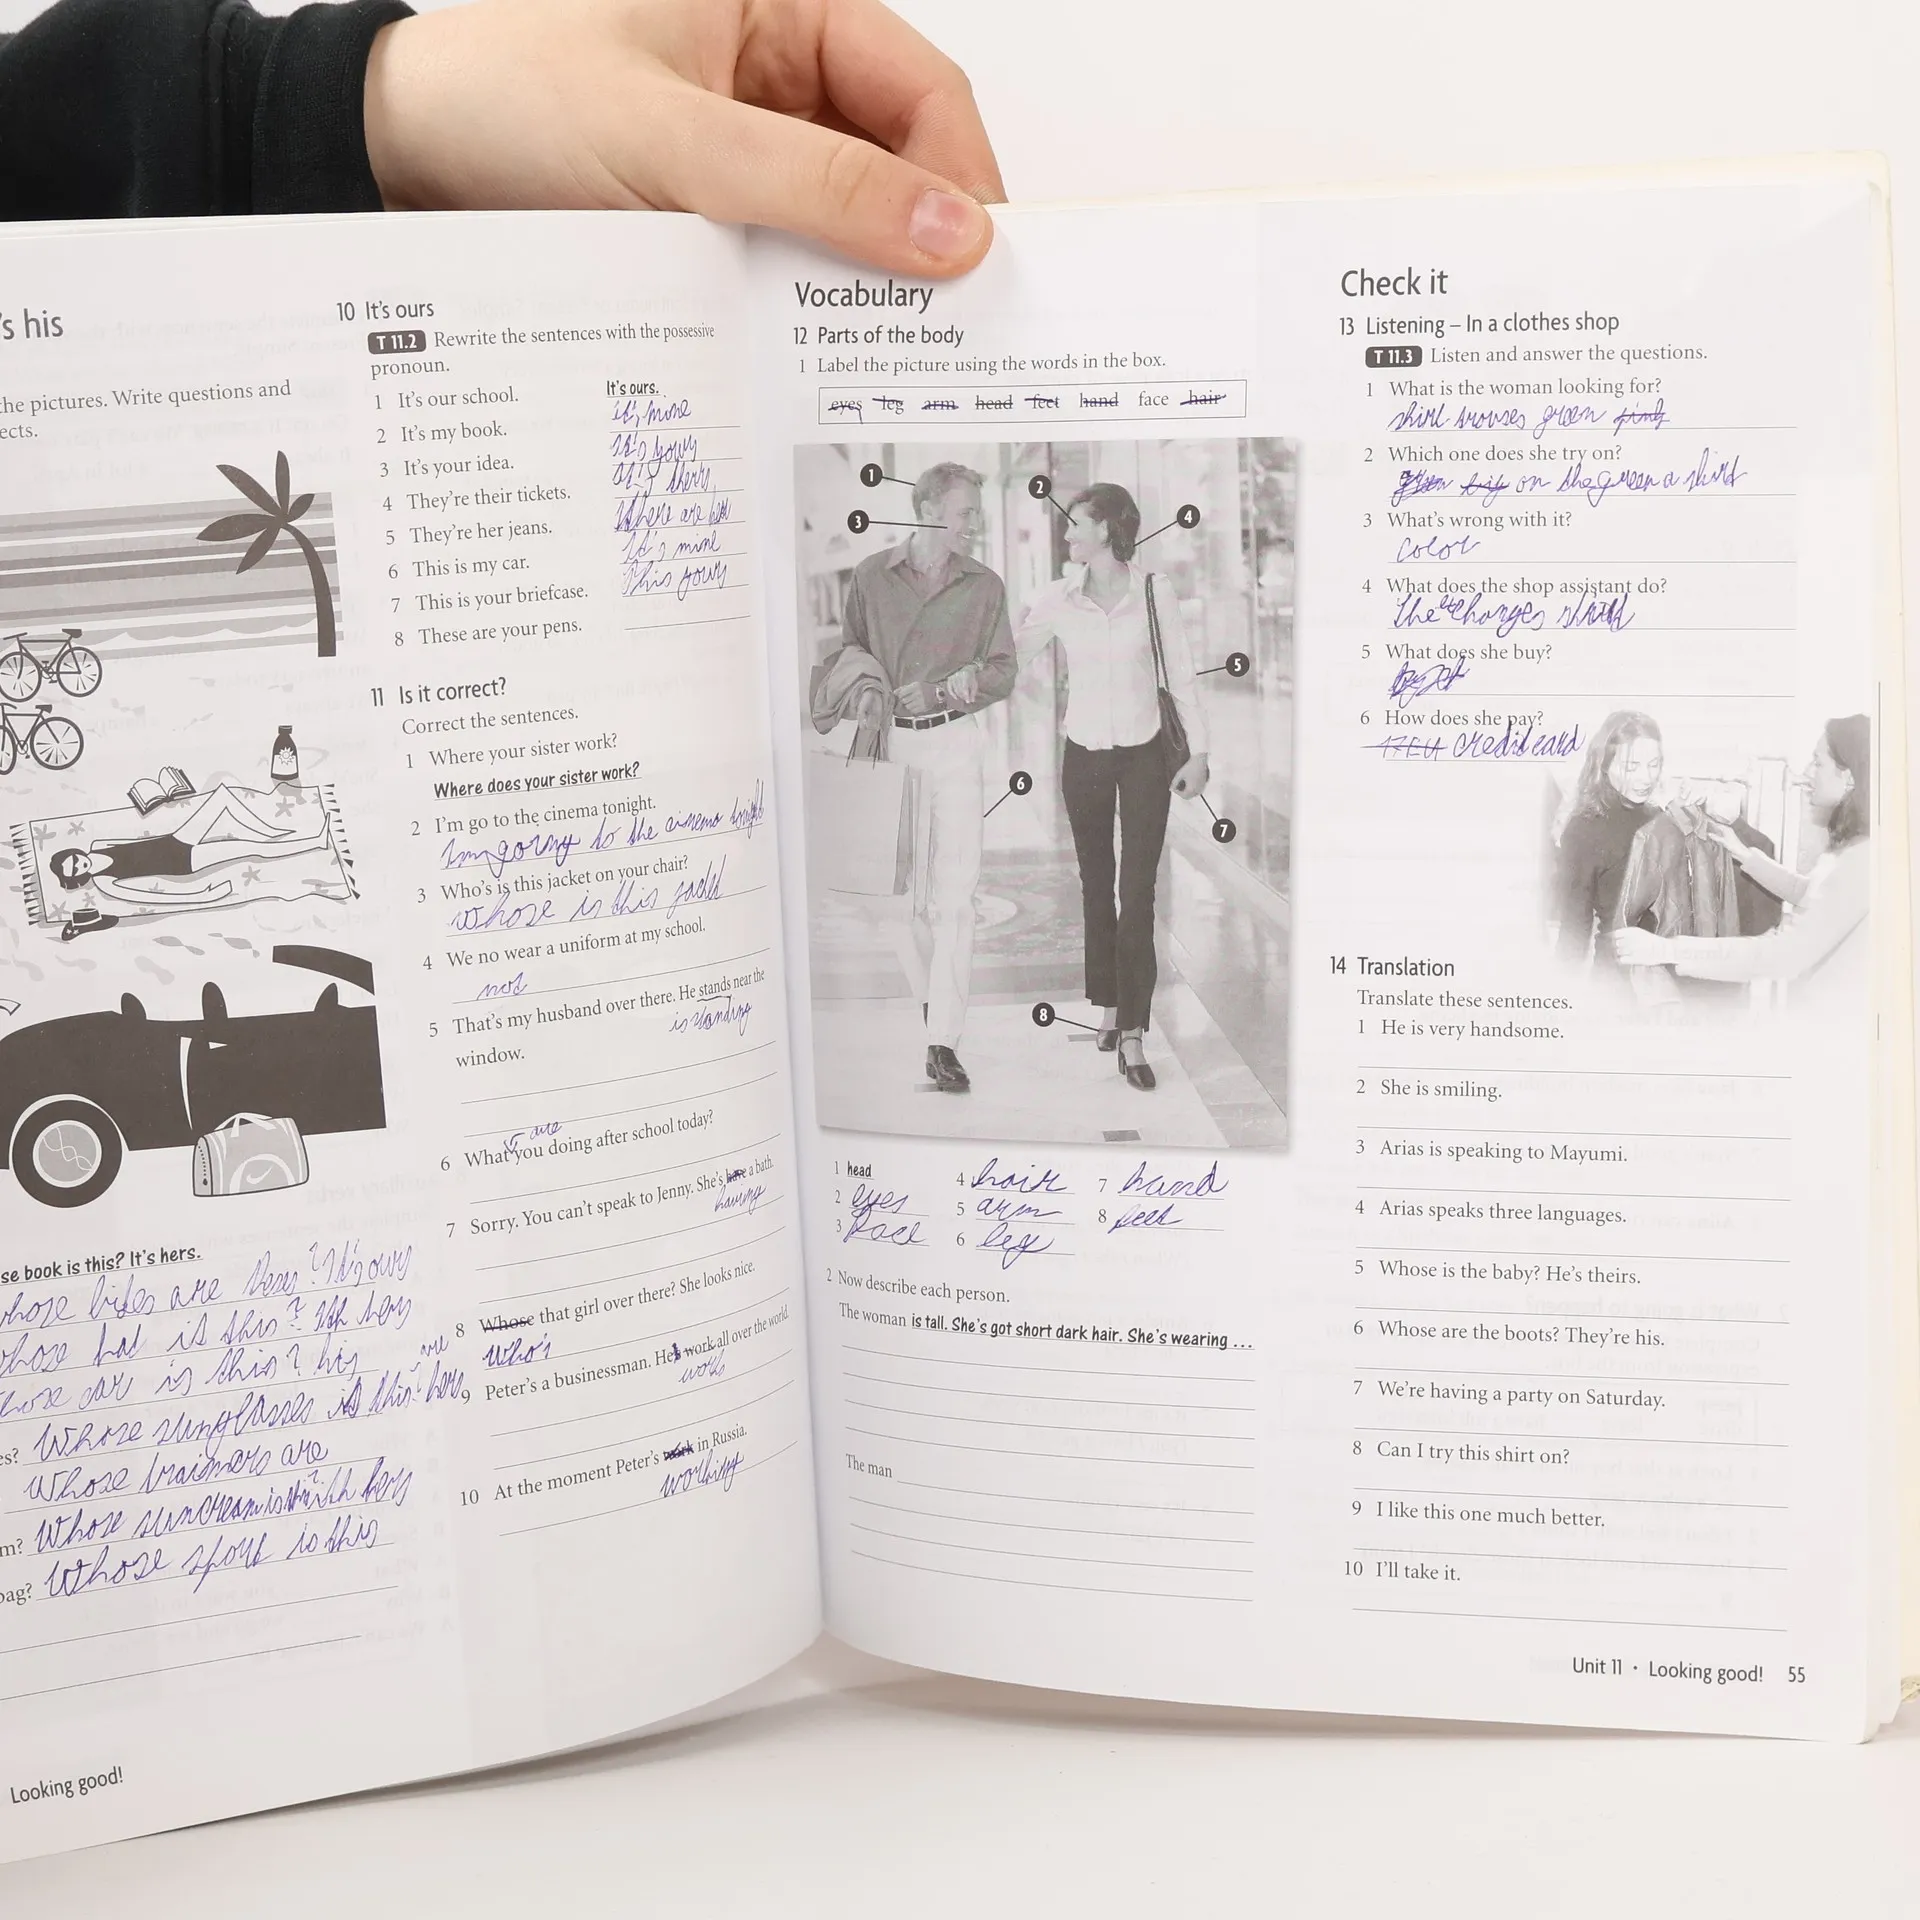 's his
the pictures. Write questions and
ects.
se book is this? It's hers.
whose bikes are these? It's ours
whose hat is this? hers
whose car is this? his
es? Whose sunglasses is this? hers
are
Whose trainers are
m? Whose suncream is this? hers
bag? Whose sport is this
Looking good!
10 It's ours
T 11.2 Rewrite the sentences with the possessive
pronoun.
1 It's our school. It's ours.
2 It's my book. it's mine
3 It's your idea. It's yours
4 They're their tickets.
5 They're her jeans.
6 This is my car. It's mine
7 This is your briefcase. This yours
8 These are your pens.
11 Is it correct?
Correct the sentences.
1 Where your sister work?
Where does your sister work?
2 I'm go to the cinema tonight.
I'm going to the cinema tonight
3 Who's is this jacket on your chair?
whose is this jacket
4 We no wear a uniform at my school.
not
5 That's my husband over there. He stands near the
is standing
window.
are
6 What you doing after school today?
7 Sorry. You can't speak to Jenny. She's have a bath.
having
8 Whose that girl over there? She looks nice.
Who's
9 Peter's a businessman. He's work all over the world.
works
10 At the moment Peter's work in Russia.
working
Vocabulary
12 Parts of the body
1 Label the picture using the words in the box.
eyes leg arm head feet hand face hair
1
2
3
4
5
6
7
8
1 head 4 hair 7 hand
2 eyes 5 arm 8 feet
3 face 6 leg
2 Now describe each person.
The woman is tall. She's got short dark hair. She's wearing ...
The man
Check it
13 Listening – In a clothes shop
T 11.3 Listen and answer the questions.
1 What is the woman looking for?
shirt trouses green
2 Which one does she try on?
on the green a shirt
3 What's wrong with it?
color
4 What does the shop assistant do?
The changes
5 What does she buy?
6 How does she pay?
credit card
14 Translation
Translate these sentences.
1 He is very handsome.
2 She is smiling.
3 Arias is speaking to Mayumi.
4 Arias speaks three languages.
5 Whose is the baby? He's theirs.
6 Whose are the boots? They're his.
7 We're having a party on Saturday.
8 Can I try this shirt on?
9 I like this one much better.
10 I'll take it.
Unit 11 • Looking good! 55